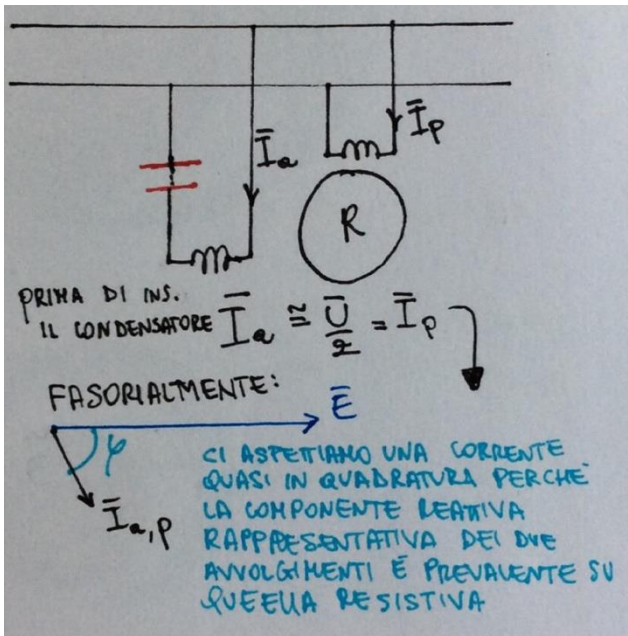 Īa
Īp
R
PRIMA DI INS.
IL CONDENSATORE Īa ≅ Ū/2 = Īp
FASORIALMENTE:
Ē
φ
Īa,p
CI ASPETTIAMO UNA CORRENTE
QUASI IN QUADRATURA PERCHÈ
LA COMPONENTE REATTIVA
RAPPRESENTATIVA DEI DUE
AVVOLGIMENTI È PREVALENTE SU
QUELLA RESISTIVA